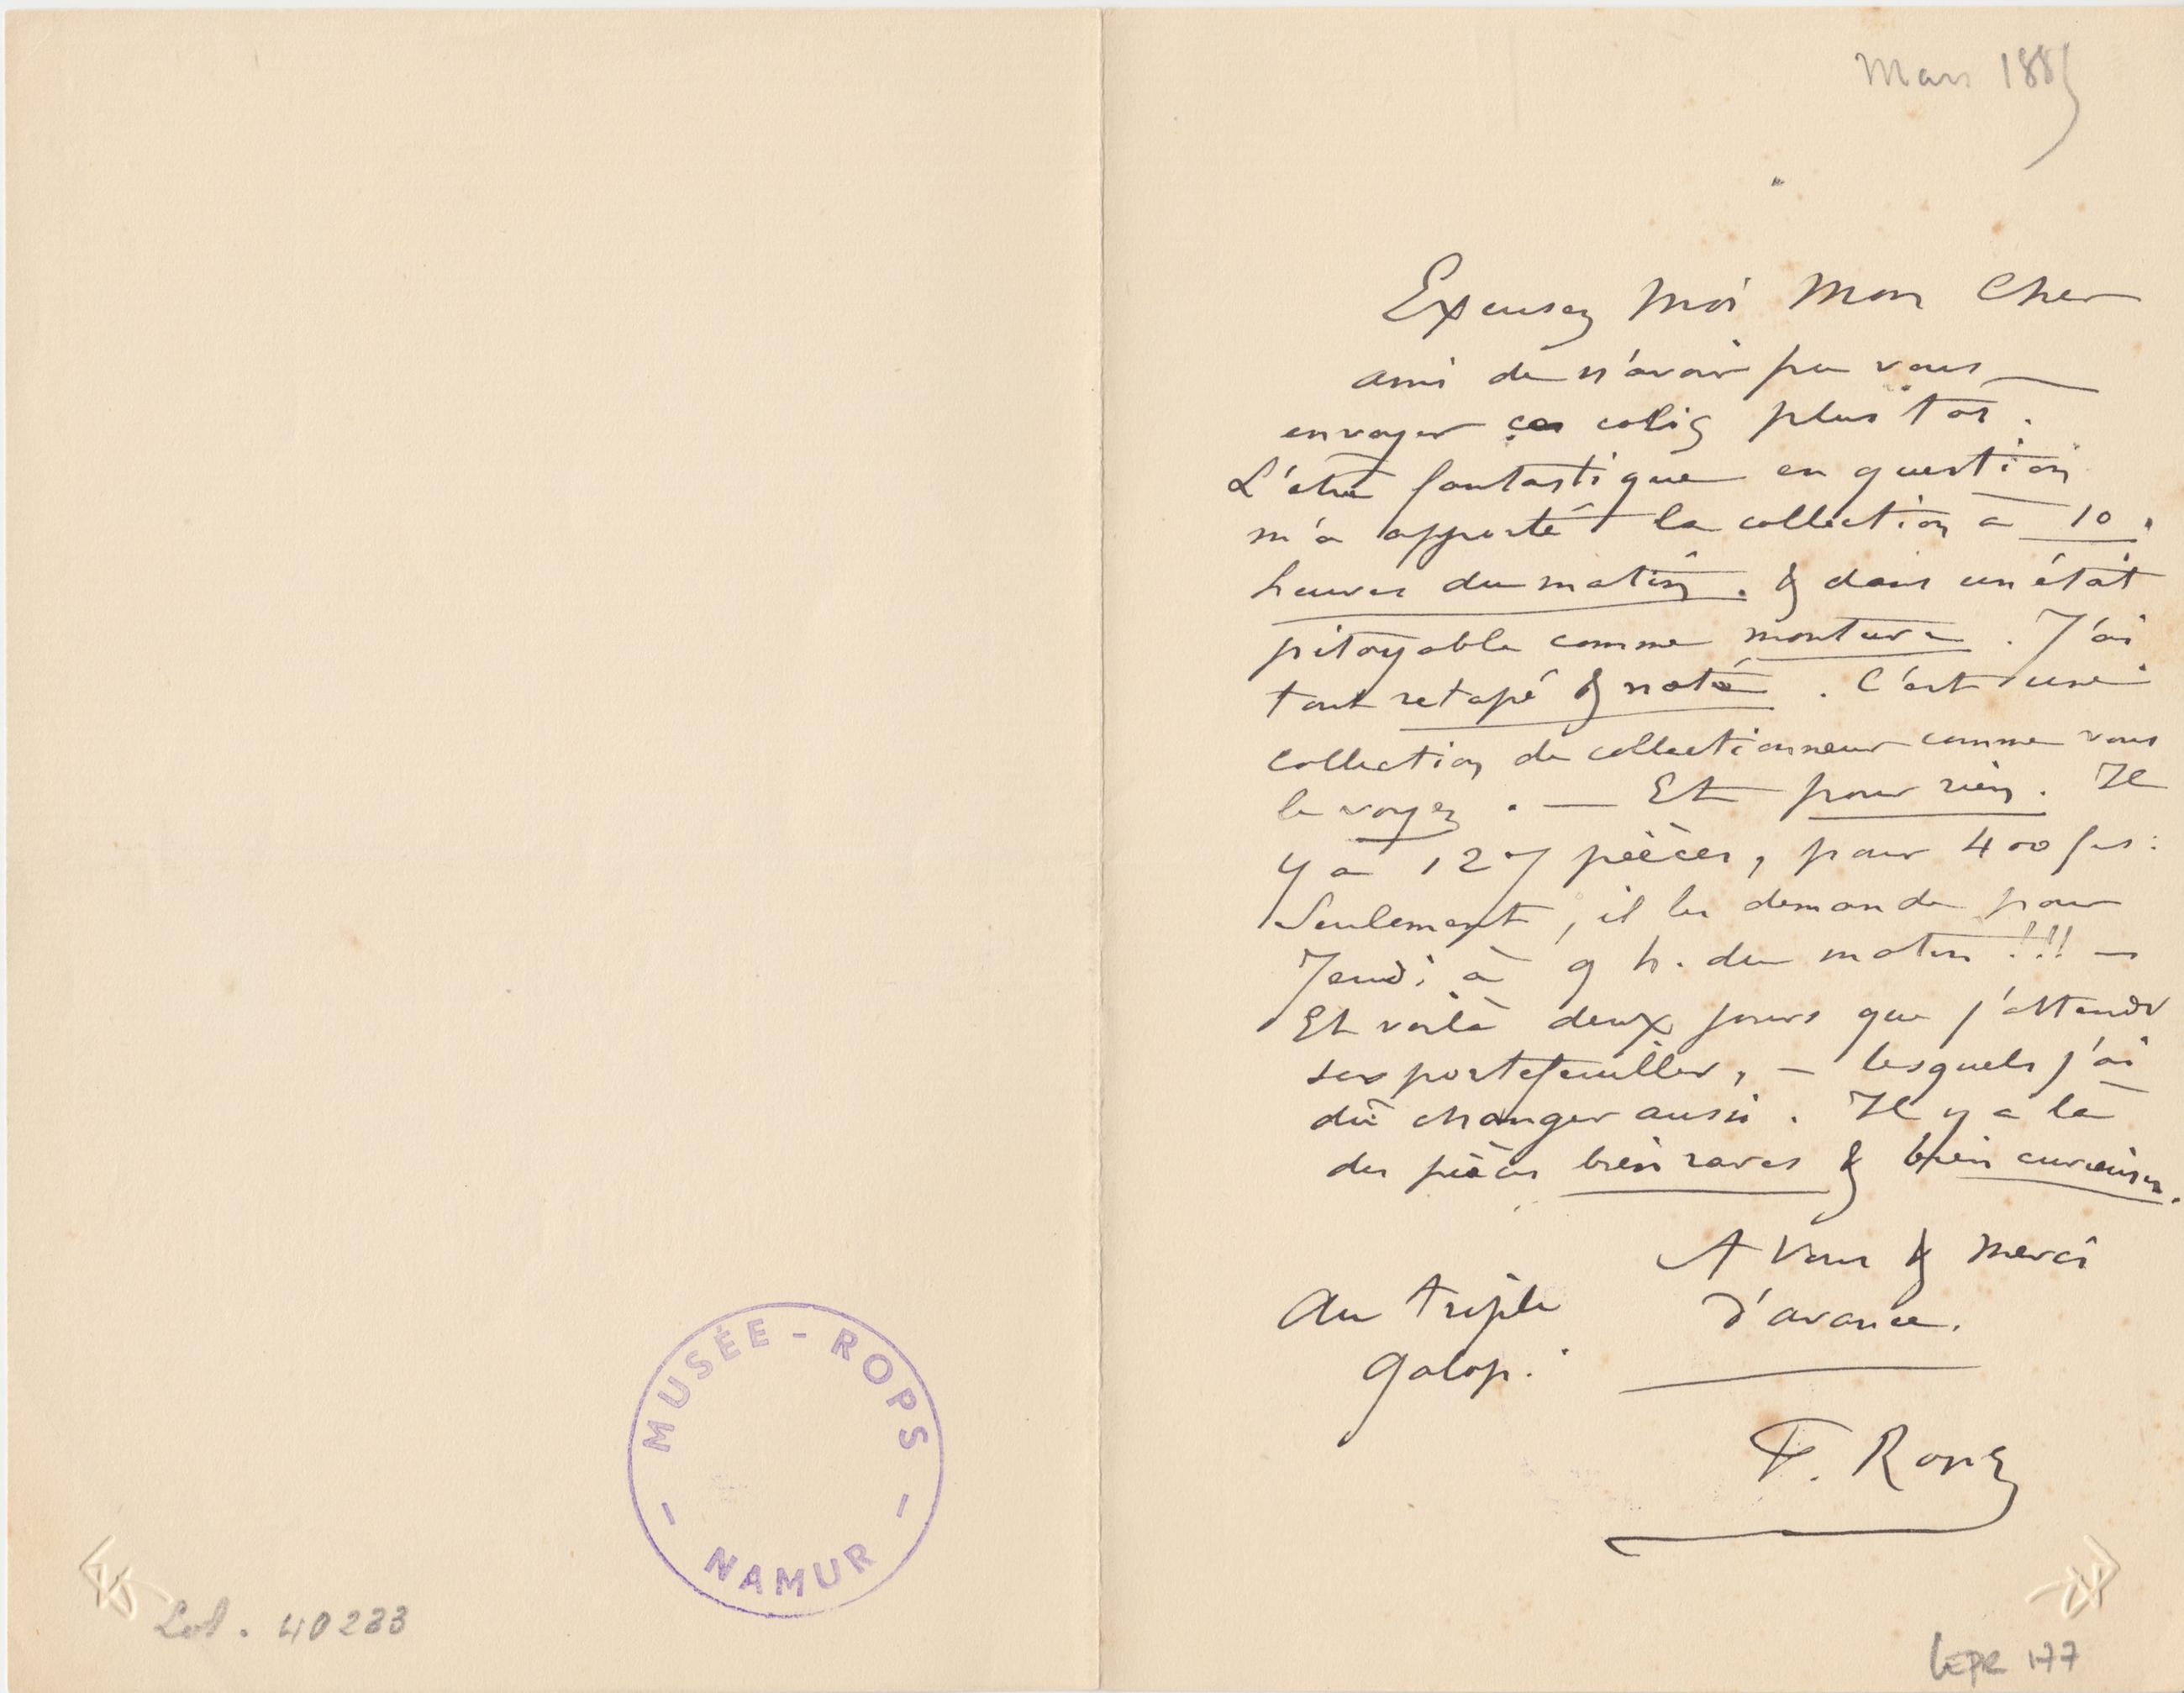 MUSÉE - ROPS
- NAMUR -
Lol. 40233
Mars 1885
Excusez Moi Mon Cher
ami de n'avoir pu vous
envoyer ces colis plus tôt.
L'être fantastique en question
m'a apporté la collection à 10
heures du matin. & dans un état
pitoyable comme monture. J'ai
tout retapé & noté. C'est une
collection de collectionneur comme vous
le voyez. — Et pour rien. Il
y a 127 pièces, pour 400 frs:
Seulement, il les demande pour
Jeudi à 9 h. du matin!!! —
Et voilà deux jours que j'attends
ses portefeuilles, — lesquels j'ai
dû changer aussi. Il y a là
des pièces bien rares & bien curieuses.
A Vous & merci
d'avance.
Au triple
galop.
F. Rops
LEpr 177